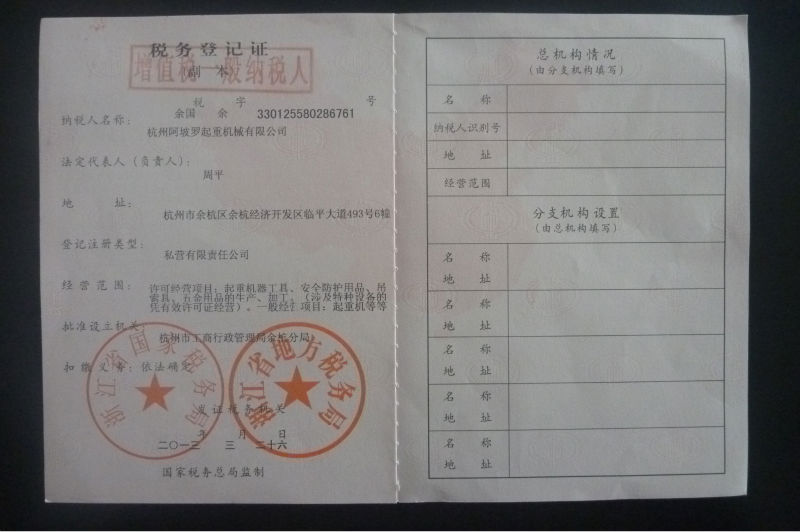 税务登记证
副本
增值税一般纳税人
税 字 号
余国 余 330125580286761
纳税人名称:
杭州阿坡罗起重机械有限公司
法定代表人(负责人):
周平
地 址:
杭州市余杭区余杭经济开发区临平大道493号6幢
登记注册类型:
私营有限责任公司
经营范围:
许可经营项目:起重机器工具、安全防护用品、吊
索具、五金用品的生产、加工。(涉及特种设备的
凭有效许可证经营)。一般经营项目:起重机等等
批准设立机关:
杭州市工商行政管理局余杭分局
扣缴义务:依法确定
浙江省国家税务局
浙江省地方税务局
发证税务机关
年 月 日
二〇一三 三 二十六
国家税务总局监制
总机构情况
(由分支机构填写)
名 称
纳税人识别号
地 址
经营范围
分支机构设置
(由总机构填写)
名 称
地 址
名 称
地 址
名 称
地 址
名 称
地 址
名 称
地 址